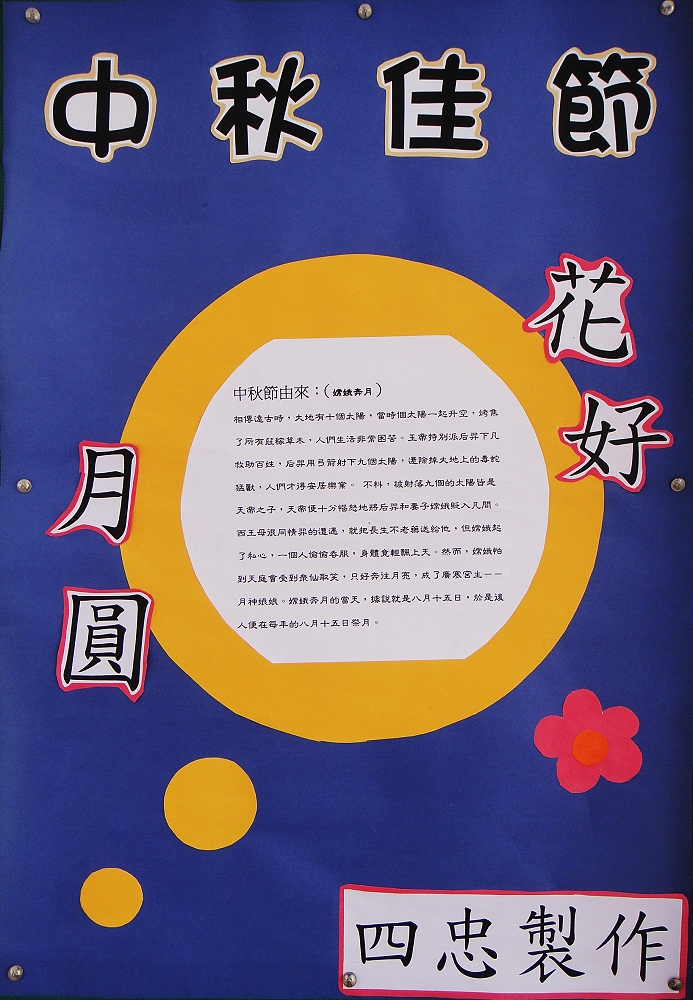 中秋佳節
花好
月圓
中秋節由來：(嫦娥奔月)
相傳遠古時，大地有十個太陽，當時個太陽一起升空，烤焦
了所有莊稼草木，人們生活非常困苦。玉帝特別派后羿下凡
救助百姓，后羿用弓箭射下九個太陽，還除掉大地上的毒蛇
猛獸，人們才得安居樂業。 不料，被射落九個的太陽皆是
天帝之子，天帝便十分惱怒地將后羿和妻子嫦娥貶入凡間。
西王母很同情羿的遭遇，就把長生不老藥送給他，但嫦娥起
了私心，一個人偷偷吞服，身體竟輕飄上天。然而，嫦娥怕
到天庭會受到眾仙取笑，只好奔往月亮，成了廣寒宮主——
月神娘娘。嫦娥奔月的當天，據說就是八月十五日，於是後
人便在每年的八月十五日祭月。
四忠製作